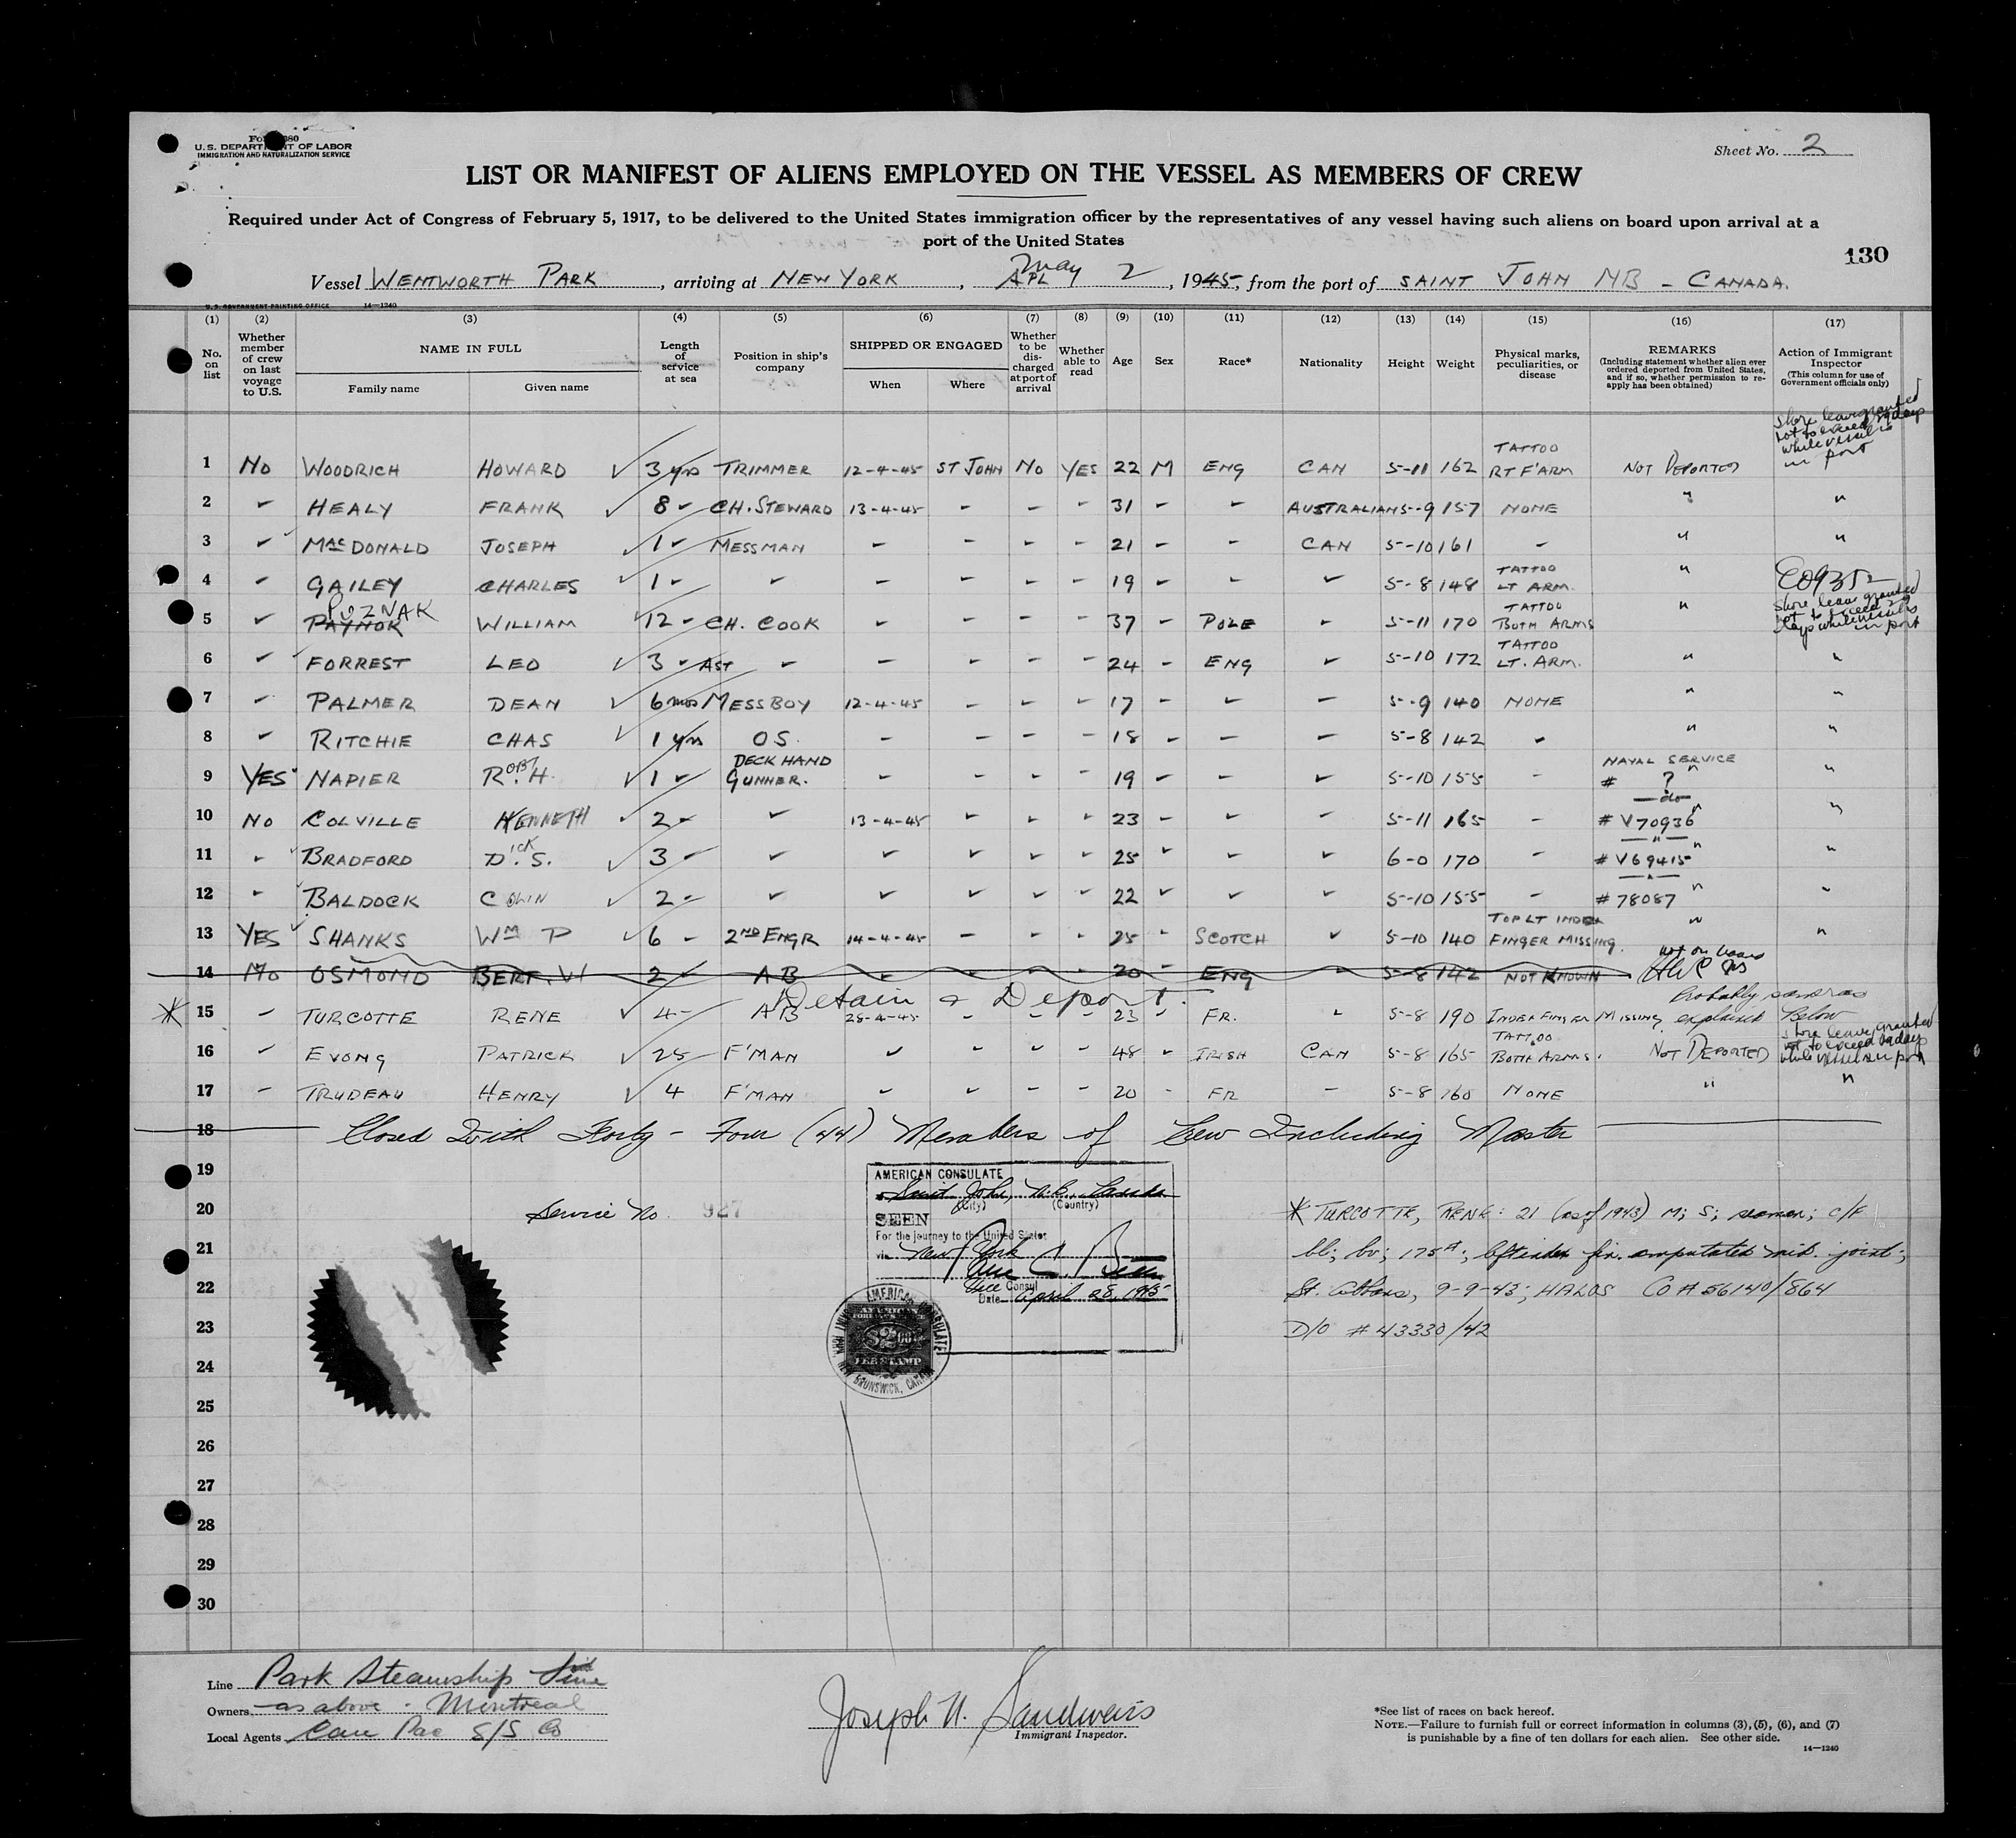 Form 680
U.S. DEPARTMENT OF LABOR
IMMIGRATION AND NATURALIZATION SERVICE
Sheet No. 2
LIST OR MANIFEST OF ALIENS EMPLOYED ON THE VESSEL AS MEMBERS OF CREW
Required under Act of Congress of February 5, 1917, to be delivered to the United States immigration officer by the representatives of any vessel having such aliens on board upon arrival at a
port of the United States
130
Vessel WENTWORTH PARK, arriving at NEW YORK, APL May 2, 1945, from the port of SAINT JOHN NB - CANADA.
U.S. GOVERNMENT PRINTING OFFICE 14—1240
(1) (2) (3) (4) (5) (6) (7) (8) (9) (10) (11) (12) (13) (14) (15) (16) (17)
No. on list
Whether member of crew on last voyage to U.S.
NAME IN FULL
Family name
Given name
Length of service at sea
Position in ship's company
SHIPPED OR ENGAGED
When
Where
Whether to be discharged at port of arrival
Whether able to read
Age
Sex
Race*
Nationality
Height
Weight
Physical marks, peculiarities, or disease
REMARKS
(Including statement whether alien ever ordered deported from United States, and if so, whether permission to reapply has been obtained)
Action of Immigrant Inspector
(This column for use of Government officials only)
Shore leave granted not to exceed 29 days while vessel is in port
1 NO WOODRICH HOWARD ✓ 3 yrs TRIMMER 12-4-45 ST JOHN NO YES 22 M ENG CAN 5-11 162 TATTOO RT F'ARM NOT DEPORTED
2 " HEALY FRANK ✓ 8 " CH. STEWARD 13-4-45 " " " 31 " " AUSTRALIAN 5-9 157 NONE " "
3 " MACDONALD JOSEPH ✓ 1 " MESSMAN " " " " 21 " " CAN 5-10 161 " " "
4 " GAILEY CHARLES ✓ 1 " " " " " " 19 " " " 5-8 148 TATTOO LT ARM. " E09352
5 " PAYNOK POZNAK WILLIAM 12 " CH. COOK " " " " 37 " POLE " 5-11 170 TATTOO BOTH ARMS " Shore leave granted not to exceed 29 days while vessel is in port
6 " FORREST LEO ✓ 3 " AST " " " " " 24 " ENG " 5-10 172 TATTOO LT. ARM. " "
7 " PALMER DEAN ✓ 6 mos MESSBOY 12-4-45 " " " 17 " " " 5-9 140 NONE " "
8 " RITCHIE CHAS ✓ 1 yrs OS. " " " " 18 " " " 5-8 142 " " "
9 YES NAPIER ROBT. H. ✓ 1 " DECK HAND GUNNER. " " " " 19 " " " 5-10 155 " NAVAL SERVICE # ? " "
10 NO COLVILLE KENNETH ✓ 2 " " 13-4-45 " " " 23 " " " 5-11 165 " —do— # V70936 " "
11 " BRADFORD DICK. S. ✓ 3 " " " " " " 25 " " " 6-0 170 " — " — # V69415 " "
12 " BALDOCK COLIN ✓ 2 " " " " " " 22 " " " 5-10 155 " — " — # 78087 " "
13 YES SHANKS WM P ✓ 6 " 2ND ENGR 14-4-45 " " " 25 " SCOTCH " 5-10 140 TOP LT INDEX FINGER MISSING. " "
14 NO OSMOND BERT. W 2 " AB " " " " 20 " ENG " 5-8 142 NOT KNOWN not on board
Detain & Deport.
15 " TURCOTTE RENE ✓ 4 " AB 28-4-45 " " " 23 " FR. " 5-8 190 INDEX FINGER MISSING Probably same as explained below
16 " EVONG PATRICK ✓ 25 F'MAN " " " " 48 " IRISH CAN 5-8 165 TATTOO BOTH ARMS. NOT DEPORTED Shore leave granted not to exceed 29 days while vessel is in port
17 " TRUDEAU HENRY ✓ 4 F'MAN " " " " 20 " FR " 5-8 160 NONE " "
18 Closed With Forty - Four (44) Members of Crew Including Master
19
20
21
22
23
24
25
26
27
28
29
30
Service No. 927
AMERICAN CONSULATE
Saint John, N.B., Canada
(City) (Country)
SEEN
For the journey to the United States
via New York
Vice Consul
Date April 28, 1945
AMERICAN CONSULATE
NEW BRUNSWICK, CANADA
$2.00
FEE STAMP
* TURCOTTE, RENE: 21 (as of 1943) M; S; seaman; c/F
bl; br; 175#; left index fin. amputated mid. joint;
St. Albans, 9-9-43; HALDS CO # 56140/864
D/O # 43330/42
Line Park Steamship Line
Owners as above - Montreal
Local Agents Can Pac S/S Co
Joseph N. Sandweis
Immigrant Inspector.
*See list of races on back hereof.
NOTE.—Failure to furnish full or correct information in columns (3), (5), (6), and (7)
is punishable by a fine of ten dollars for each alien. See other side.
14—1240